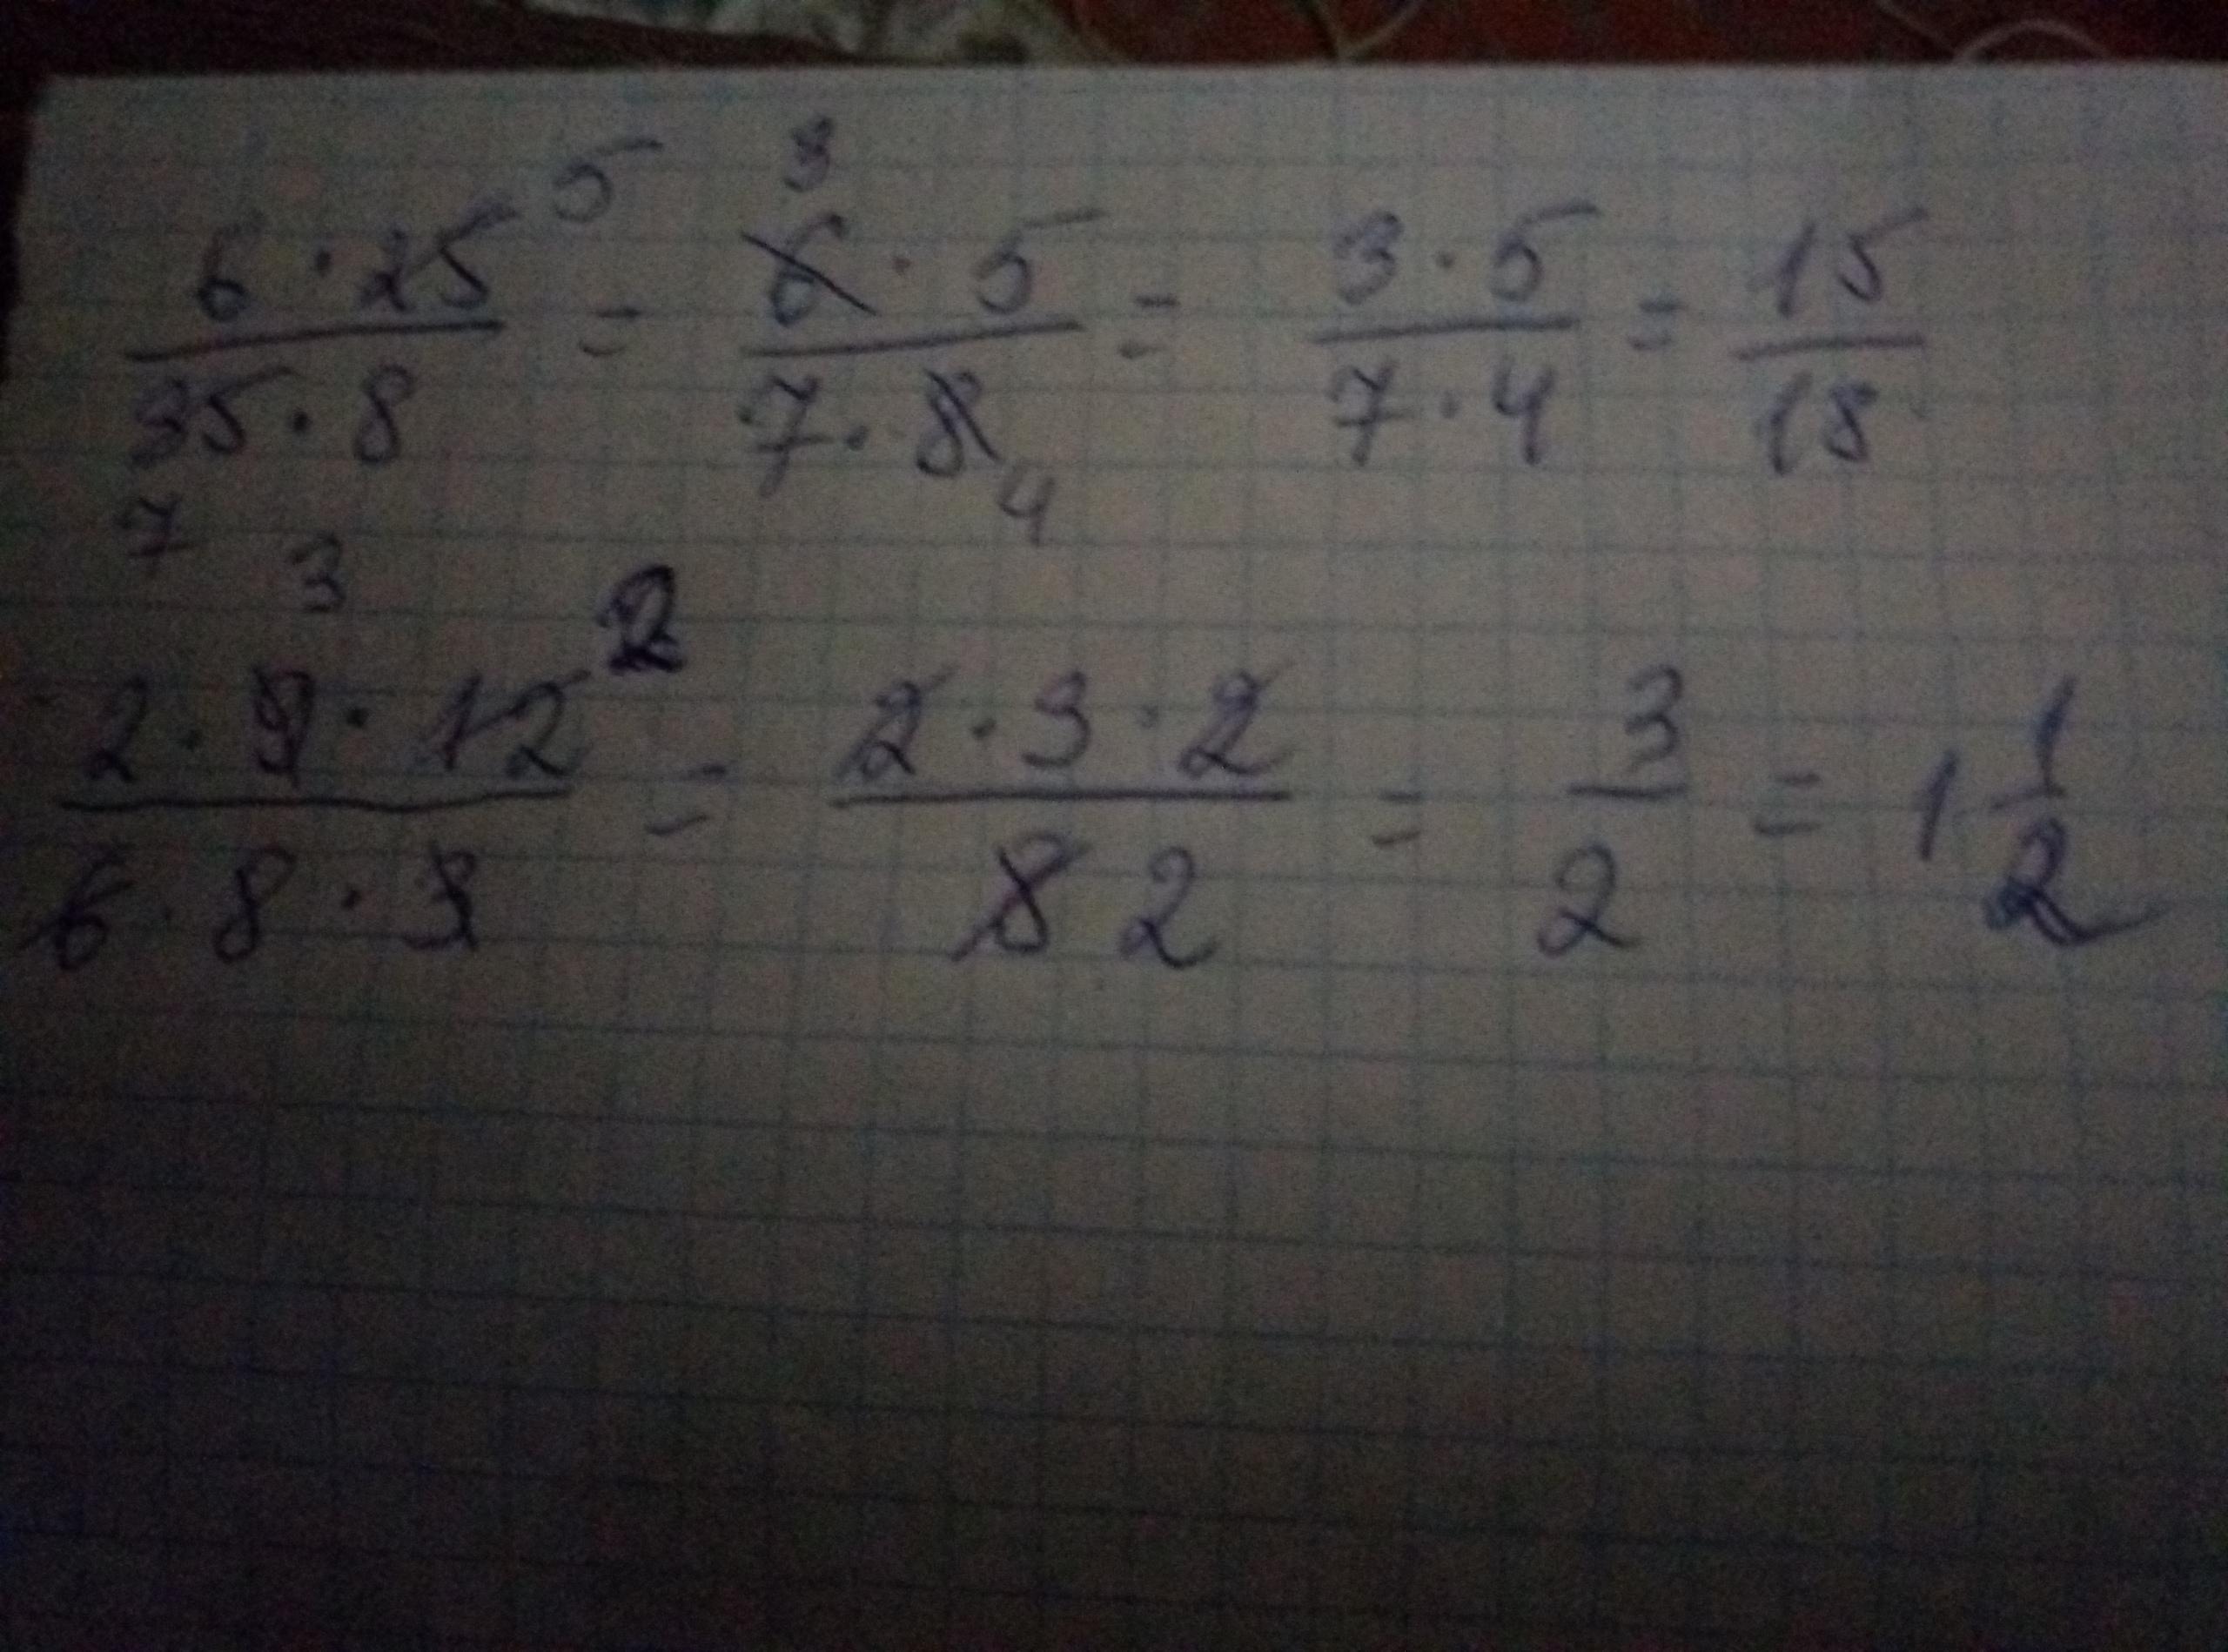 6 · 25 5 / 35 · 8 7 = 6 3 · 5 / 7 · 8 4 = 3 · 5 / 7 · 4 = 15 / 18
2 · 9 3 · 12 2 / 6 · 8 · 3 = 2 · 3 · 2 / 8 2 = 3 / 2 = 1 1 / 2